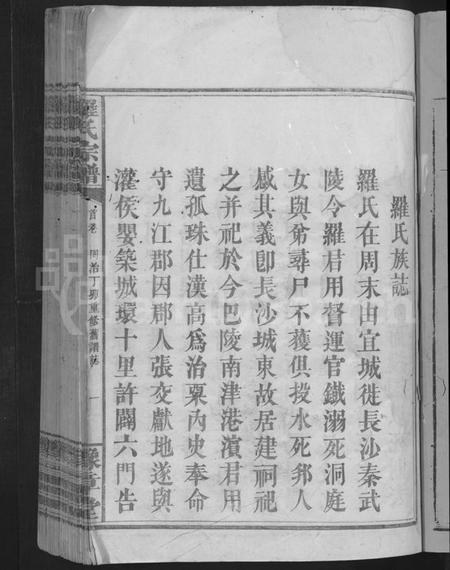 羅氏族誌
羅氏在周末由宜城徙長沙秦武
陵令羅君用督運官鐵溺死洞庭
女與弟尋尸不獲俱投水死邦人
感其義卽長沙城東故居建祠祀
之并祀於今巴陵南津港濱君用
遺孤珠仕漢高為治粟內史奉命
守九江郡因郡人張交獻地遂與
灌侯嬰築城環十里許闢六門告
羅氏宗譜
首卷
同治丁卯重修舊譜誌
一
豫章堂